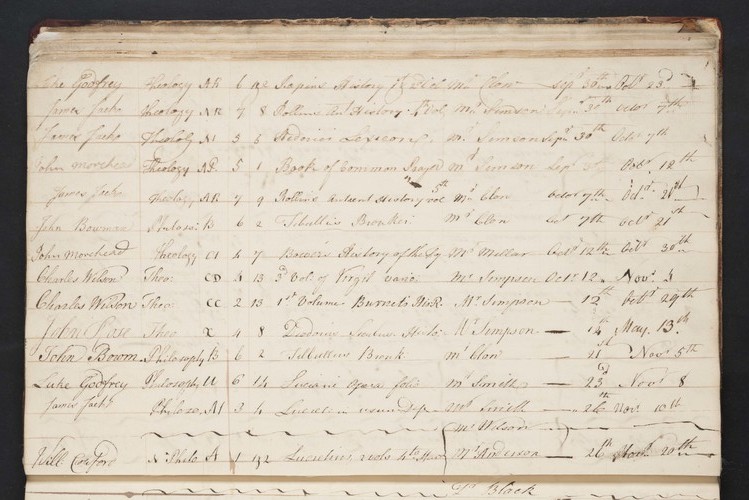 Luke Godfrey Theology AR 6 12 Rapins History 7th Vol Mr Clow Sepr 30th Octr 23d
James Jack Theology AR 7 8 Rollins An History Vol Mr Simson Sepr 30th Octor 7th
James Jack Theology 5 Lexicon Mr Simson Sepr 30th Octor 7th
John Morehead Theology 5 1 Book of Common Prayer Mr Simson Sepr Octr 12th
James Jack Theology AR 7 9 Rollins Antient History 5th vol Mr Clow Octor 7th Octr 21st
John Bowman Philoso: B 6 2 Tibullus Mr Clow Octr 7th Octr 21st
John Morehead Theology CI 4 7 Bowers History of the Mr Millar Octr 12th Octr 30th
Charles Wilson Theo CD 4 13 3d Vol. of Virgil vario Mr Simpson Octr 12 Novr 4
Charles Wilson Theo CC 2 13 1st Volume Burnets Mr Simpson — 12th Octr 29th
John Theo X 4 8 Mr Simpson — 14th May. 13th
John Bowm Philosophy B 6 2 Tibullus Mr Clow — 21st Novr 5th
Luke Godfrey Philosophy 6 14 Luciani opera folio Mr Smith — 23d Novr 8
James Jack Philoso 3 4 Lucretius usum Delp Mr Smith — 26th Nov. 10th
Mr Wilson
Will: N: Philo A 1 12 Lucretius 4to Mr Anderson — 26th 20th
Dr Black